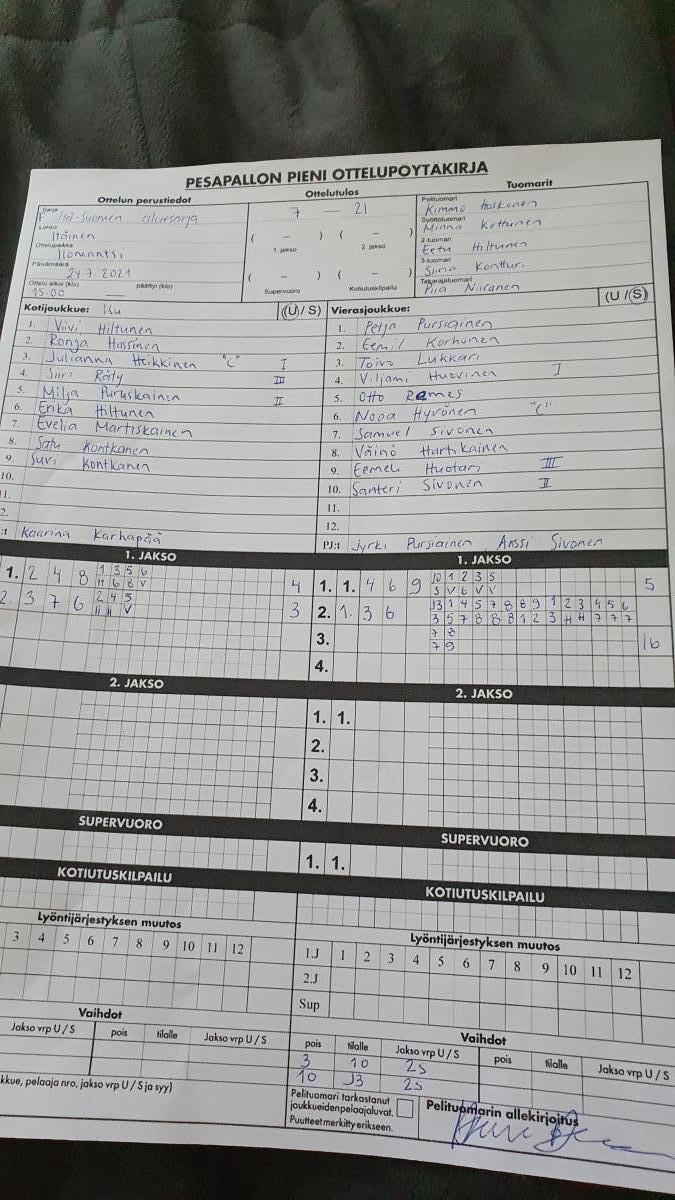 PESÄPALLON PIENI OTTELUPÖYTÄKIRJA
Ottelun perustiedot
Ottelutulos
Tuomarit
Sarja
F Itä-Suomen aluesarja
Lohko
Itäinen
Ottelupaikka
Ilomantsi
Päivämäärä
24.7.2021
Ottelu alkoi (klo)
15.00
päättyi (klo)
7 – 21
( – ) ( – )
1. jakso 2. jakso
( – ) ( – )
Supervuoro Kotiutuskilpailu
Pelituomari
Kimmo Hoskonen
Syöttötuomari
Minna Kettunen
2-tuomari
Eetu Hiltunen
3-tuomari
Siina Kontturi
Takarajatuomari
Piia Niiranen
Kotijoukkue: (U/S)
1. Viivi Hiltunen
2. Ronja Hassinen
3. Julianna Heikkinen "C" I
4. Siiri Räty III
5. Milja Puruskainen II
6. Erika Hiltunen
7. Evelia Martiskainen
8. Satu Kontkanen
9. Suvi Kontkanen
10.
11.
2.
:t Kaarina Karhapää
Vierasjoukkue: (U/S)
1. Petja Pursiainen
2. Eemil Korhonen
3. Toivo Lukkari
4. Viljami Huovinen I
5. Otto Rämes
6. Nooa Hyvönen "C"
7. Samuel Sivonen
8. Väinö Hartikainen
9. Eemeli Huotari III
10. Santeri Sivonen II
11.
12.
PJ:t Jyrki Pursiainen Anssi Sivonen
1. JAKSO
1. 2 4 8 1 3 5 6 4
H 6 8 V
2. 3 7 6 2 4 5 3
H H V
1. JAKSO
1. 1. 4 6 9 10 1 2 3 5 5
3 V 6 V V
2. 1. 3 6 J3 1 4 5 7 8 8 9 1 2 3 4 5 6
3 5 7 8 8 8 1 2 3 H H 7 7 7
3. 7 8 16
7 9
4.
2. JAKSO
2. JAKSO
1. 1.
2.
3.
4.
SUPERVUORO
SUPERVUORO
1. 1.
KOTIUTUSKILPAILU
KOTIUTUSKILPAILU
Lyöntijärjestyksen muutos
3 4 5 6 7 8 9 10 11 12
Lyöntijärjestyksen muutos
1.J 1 2 3 4 5 6 7 8 9 10 11 12
2.J
Sup
Vaihdot
Jakso vrp U / S pois tilalle Jakso vrp U / S
Vaihdot
pois tilalle Jakso vrp U / S pois tilalle Jakso vrp U / S
3 10 2s
10 J3 2s
kkue, pelaaja nro, jakso vrp U / S ja syy)
Pelituomari tarkastanut
joukkueidenpelaajaluvat.
Puutteet merkitty erikseen.
Pelituomarin allekirjoitus